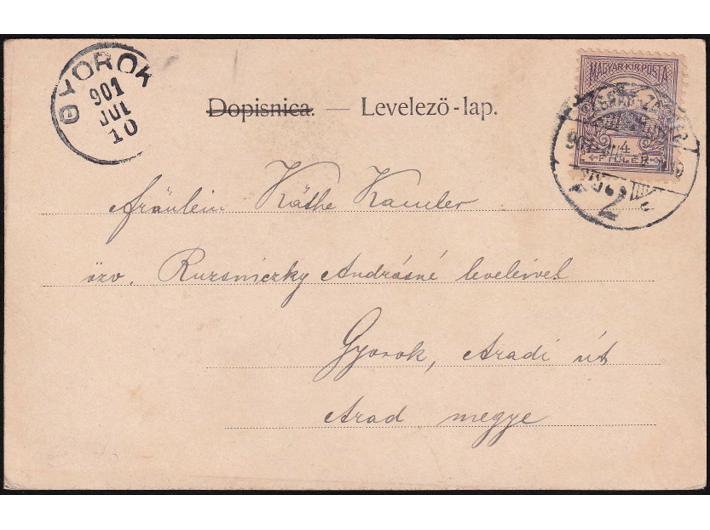 GYOROK
901
JUL
10
MAGYAR·KIR·POSTA
4
FILLÉR
2
Dopisnica. — Levelező-lap.
Fräulein Käthe Kamler
özv. Rursniczky Andrásné leveleivel
Gyorok, Aradi út
Arad megye